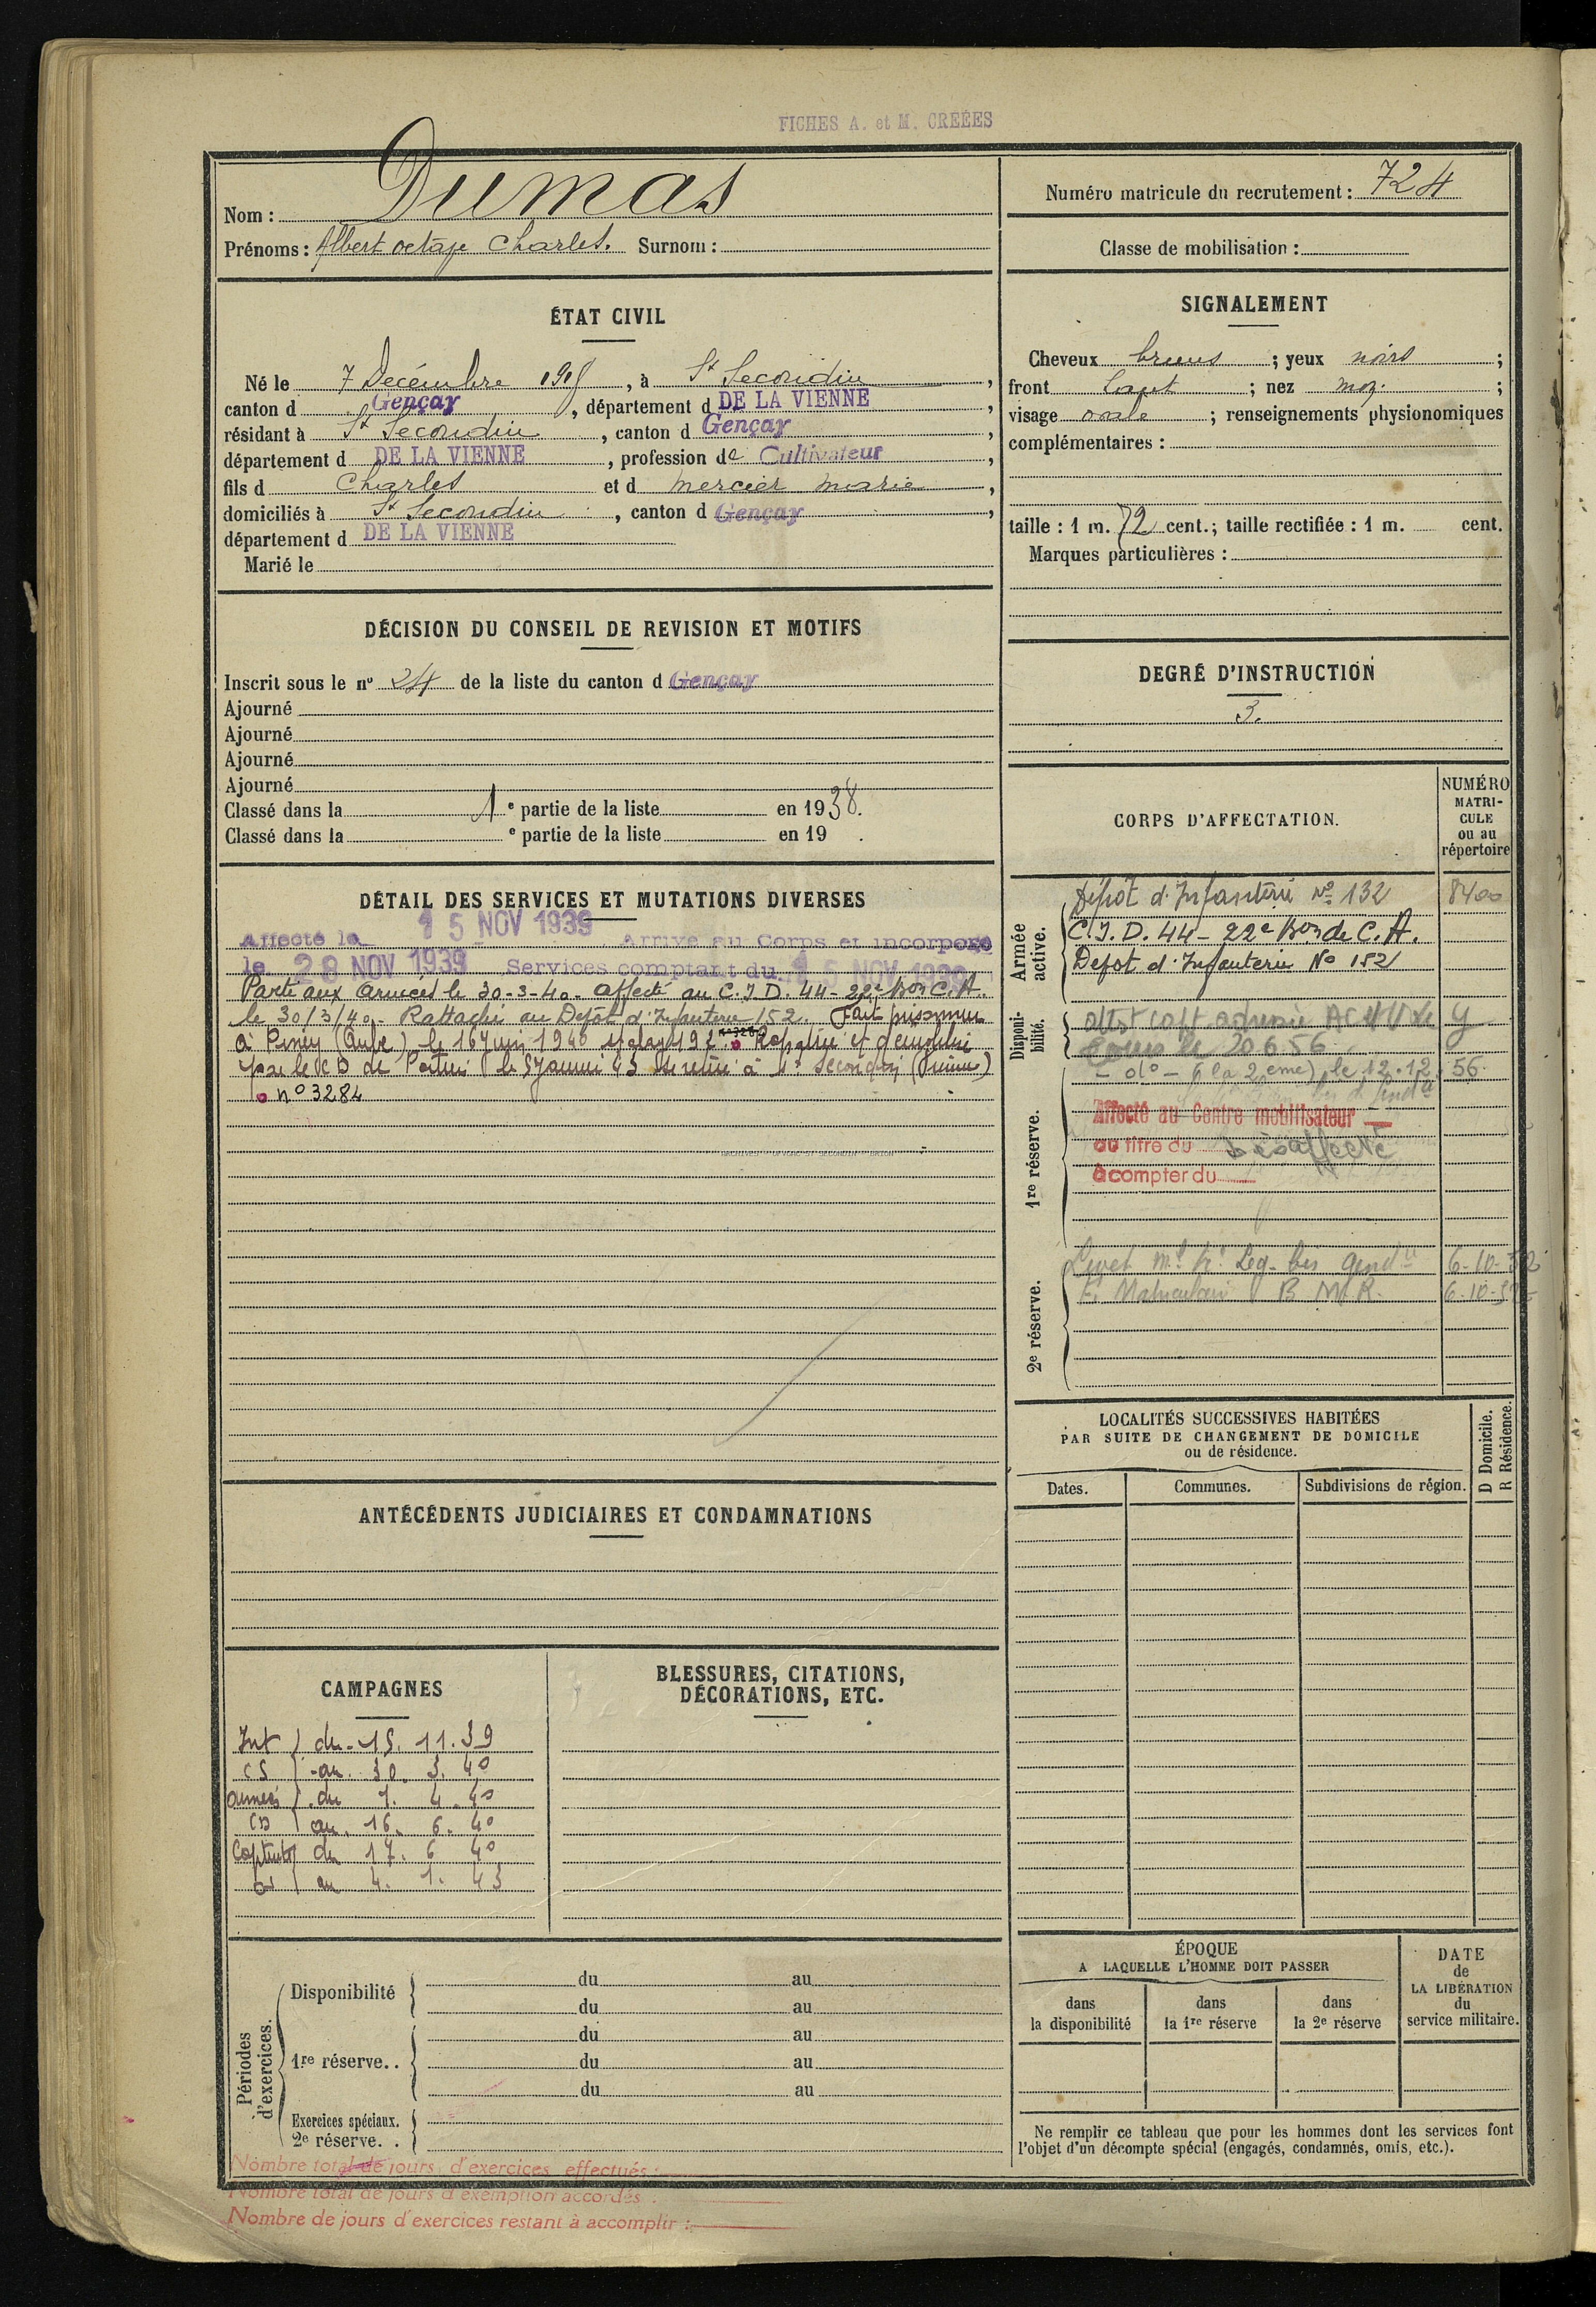 FICHES A. et M. CRÉÉES
Nom : Dumas
Prénoms : Albert octave Charles. Surnom :
Numéro matricule du recrutement : 724
Classe de mobilisation :
ÉTAT CIVIL
Né le 7 Décembre 1918, à St Secondin,
canton d Gençay, département d DE LA VIENNE,
résidant à St Secondin, canton d Gençay,
département d DE LA VIENNE, profession de Cultivateur,
fils d Charles et d mercier marie,
domiciliés à St Secondin, canton d Gençay,
département d DE LA VIENNE
Marié le
SIGNALEMENT
Cheveux bruns ; yeux noirs ;
front haut ; nez moy. ;
visage ovale ; renseignements physionomiques
complémentaires :
taille : 1 m. 72 cent.; taille rectifiée : 1 m. cent.
Marques particulières :
DÉCISION DU CONSEIL DE REVISION ET MOTIFS
Inscrit sous le nº 24 de la liste du canton d Gençay
Ajourné
Ajourné
Ajourné
Ajourné
Classé dans la 1 e partie de la liste en 1938.
Classé dans la e partie de la liste en 19 .
DEGRÉ D'INSTRUCTION
3.
DÉTAIL DES SERVICES ET MUTATIONS DIVERSES
Affecté le 15 NOV 1939 Arrivé au Corps et incorporé
le 28 NOV 1939 Services comptant du 15 NOV 1939
Parti aux Armées le 30-3-40. Affecté au C.I.D. 44-22e Bon C.A.
le 30/3/40. Rattaché au Dépôt d'Infanterie 152. Fait prisonnier
à Piney (Aube) le 16 juin 1940 stalag 192 Rapatrié et démobilisé
par le CD de Poitiers le 5 Janvier 43 Se retire à St Secondin (Vienne)
nº 3284
ARCHIVES
CORPS D'AFFECTATION.
NUMÉRO
MATRI-
CULE
ou au
répertoire
Armée active.
Dépôt d'Infanterie Nº 132 8400
C.I.D. 44 - 22e Bon de C.A.
Dépot d'Infanterie No 152
Disponi-
bilité.
le 20.6.56
- do - (la 2eme) le 12.12.56.
1re réserve.
Affecté au Centre mobilisateur
au titre du Désaffecté
à compter du
2e réserve.
Livret Leg. bis Gendie 6-10-52
B M.R. 6-10-52
LOCALITÉS SUCCESSIVES HABITÉES
PAR SUITE DE CHANGEMENT DE DOMICILE
ou de résidence.
D Domicile.
R Résidence.
Dates. Communes. Subdivisions de région.
ANTÉCÉDENTS JUDICIAIRES ET CONDAMNATIONS
CAMPAGNES
Int du 15. 11. 39
CS au 30. 3. 40
armées du 1. 4. 40
CD au 16. 6. 40
Captivité du 17. 6 40
au 4. 1. 43
BLESSURES, CITATIONS,
DÉCORATIONS, ETC.
Périodes
d'exercices.
Disponibilité
du au
du au
1re réserve. .
du au
du au
du au
Exercices spéciaux.
2e réserve. .
ÉPOQUE
A LAQUELLE L'HOMME DOIT PASSER
dans
la disponibilité
dans
la 1re réserve
dans
la 2e réserve
DATE
de
LA LIBÉRATION
du
service militaire.
Ne remplir ce tableau que pour les hommes dont les services font
l'objet d'un décompte spécial (engagés, condamnés, omis, etc.).
Nombre total de jours d'exercices effectués :
Nombre total de jours d'exemption accordés :
Nombre de jours d'exercices restant à accomplir :